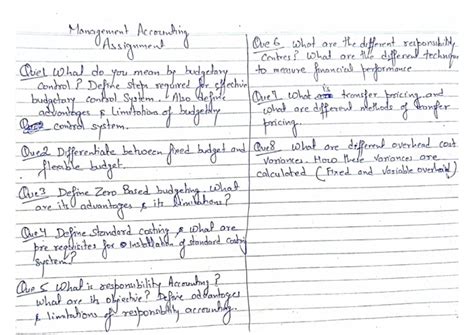 Management Accounting
Assignment
Que1 What do you mean by budgetary
control? Define steps required for effective
budgetary control system. Also define
advantages & limitations of budgetary
control system.
Que2 Differentiate between fixed budget and
flexible budget.
Que3 Define Zero Based budgeting. What
are its advantages & its limitations?
Que4 Define standard costing & what are
pre requisites for installation of standard costing
system?
Que 5 What is responsibility Accounting?
What are its objective? Define advantages
& limitations of responsibility accounting.
Que 6 What are the different responsibility
Centres? What are the different technique
to measure financial performance
Que 7 What is transfer pricing and
what are different methods of transfer
pricing.
Que8 What are different overhead cost
variances. How these variances are
calculated (Fixed and variable overhead)